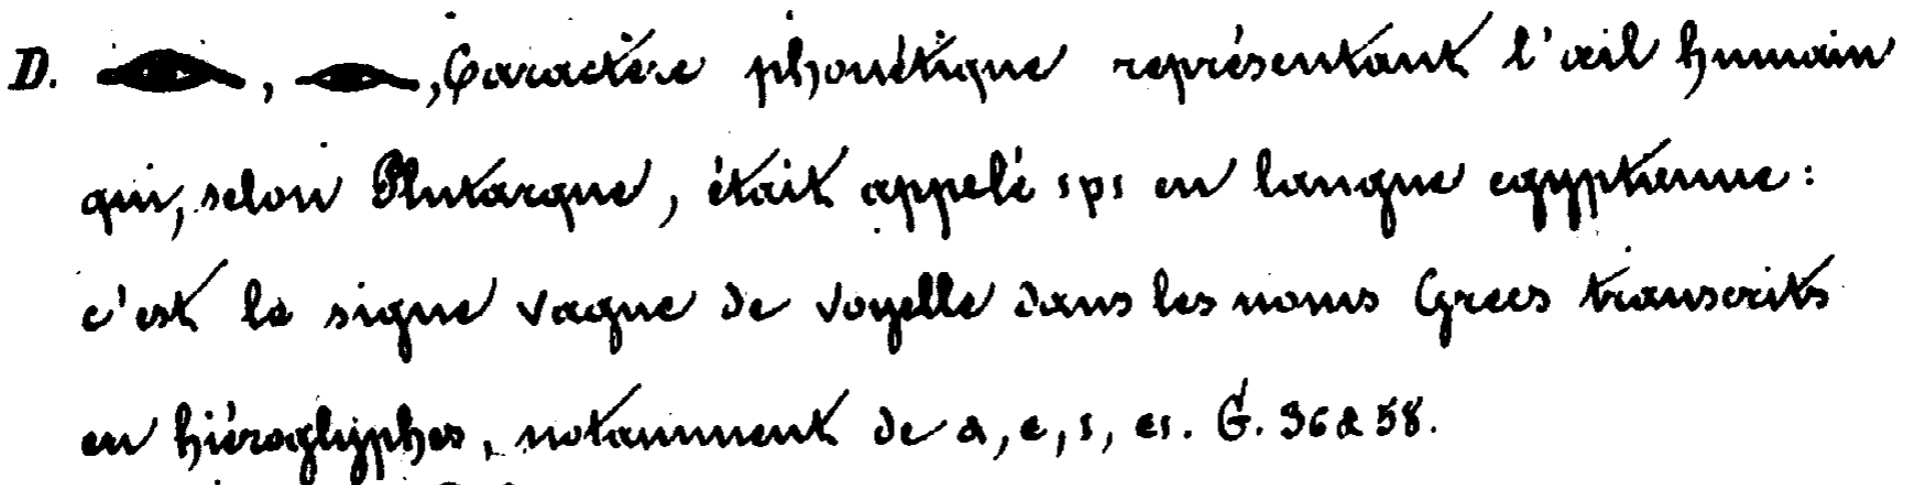 D. 𓁹, 𓁹, Caractère phonétique représentant l'œil humain
qui, selon Plutarque, était appelé ιρι en langue egyptienne :
c'est le signe vague de voyelle dans les noms Grecs transcrits
en hiéroglyphes, notamment de α, ε, ι, ει. G. 36 à 58.